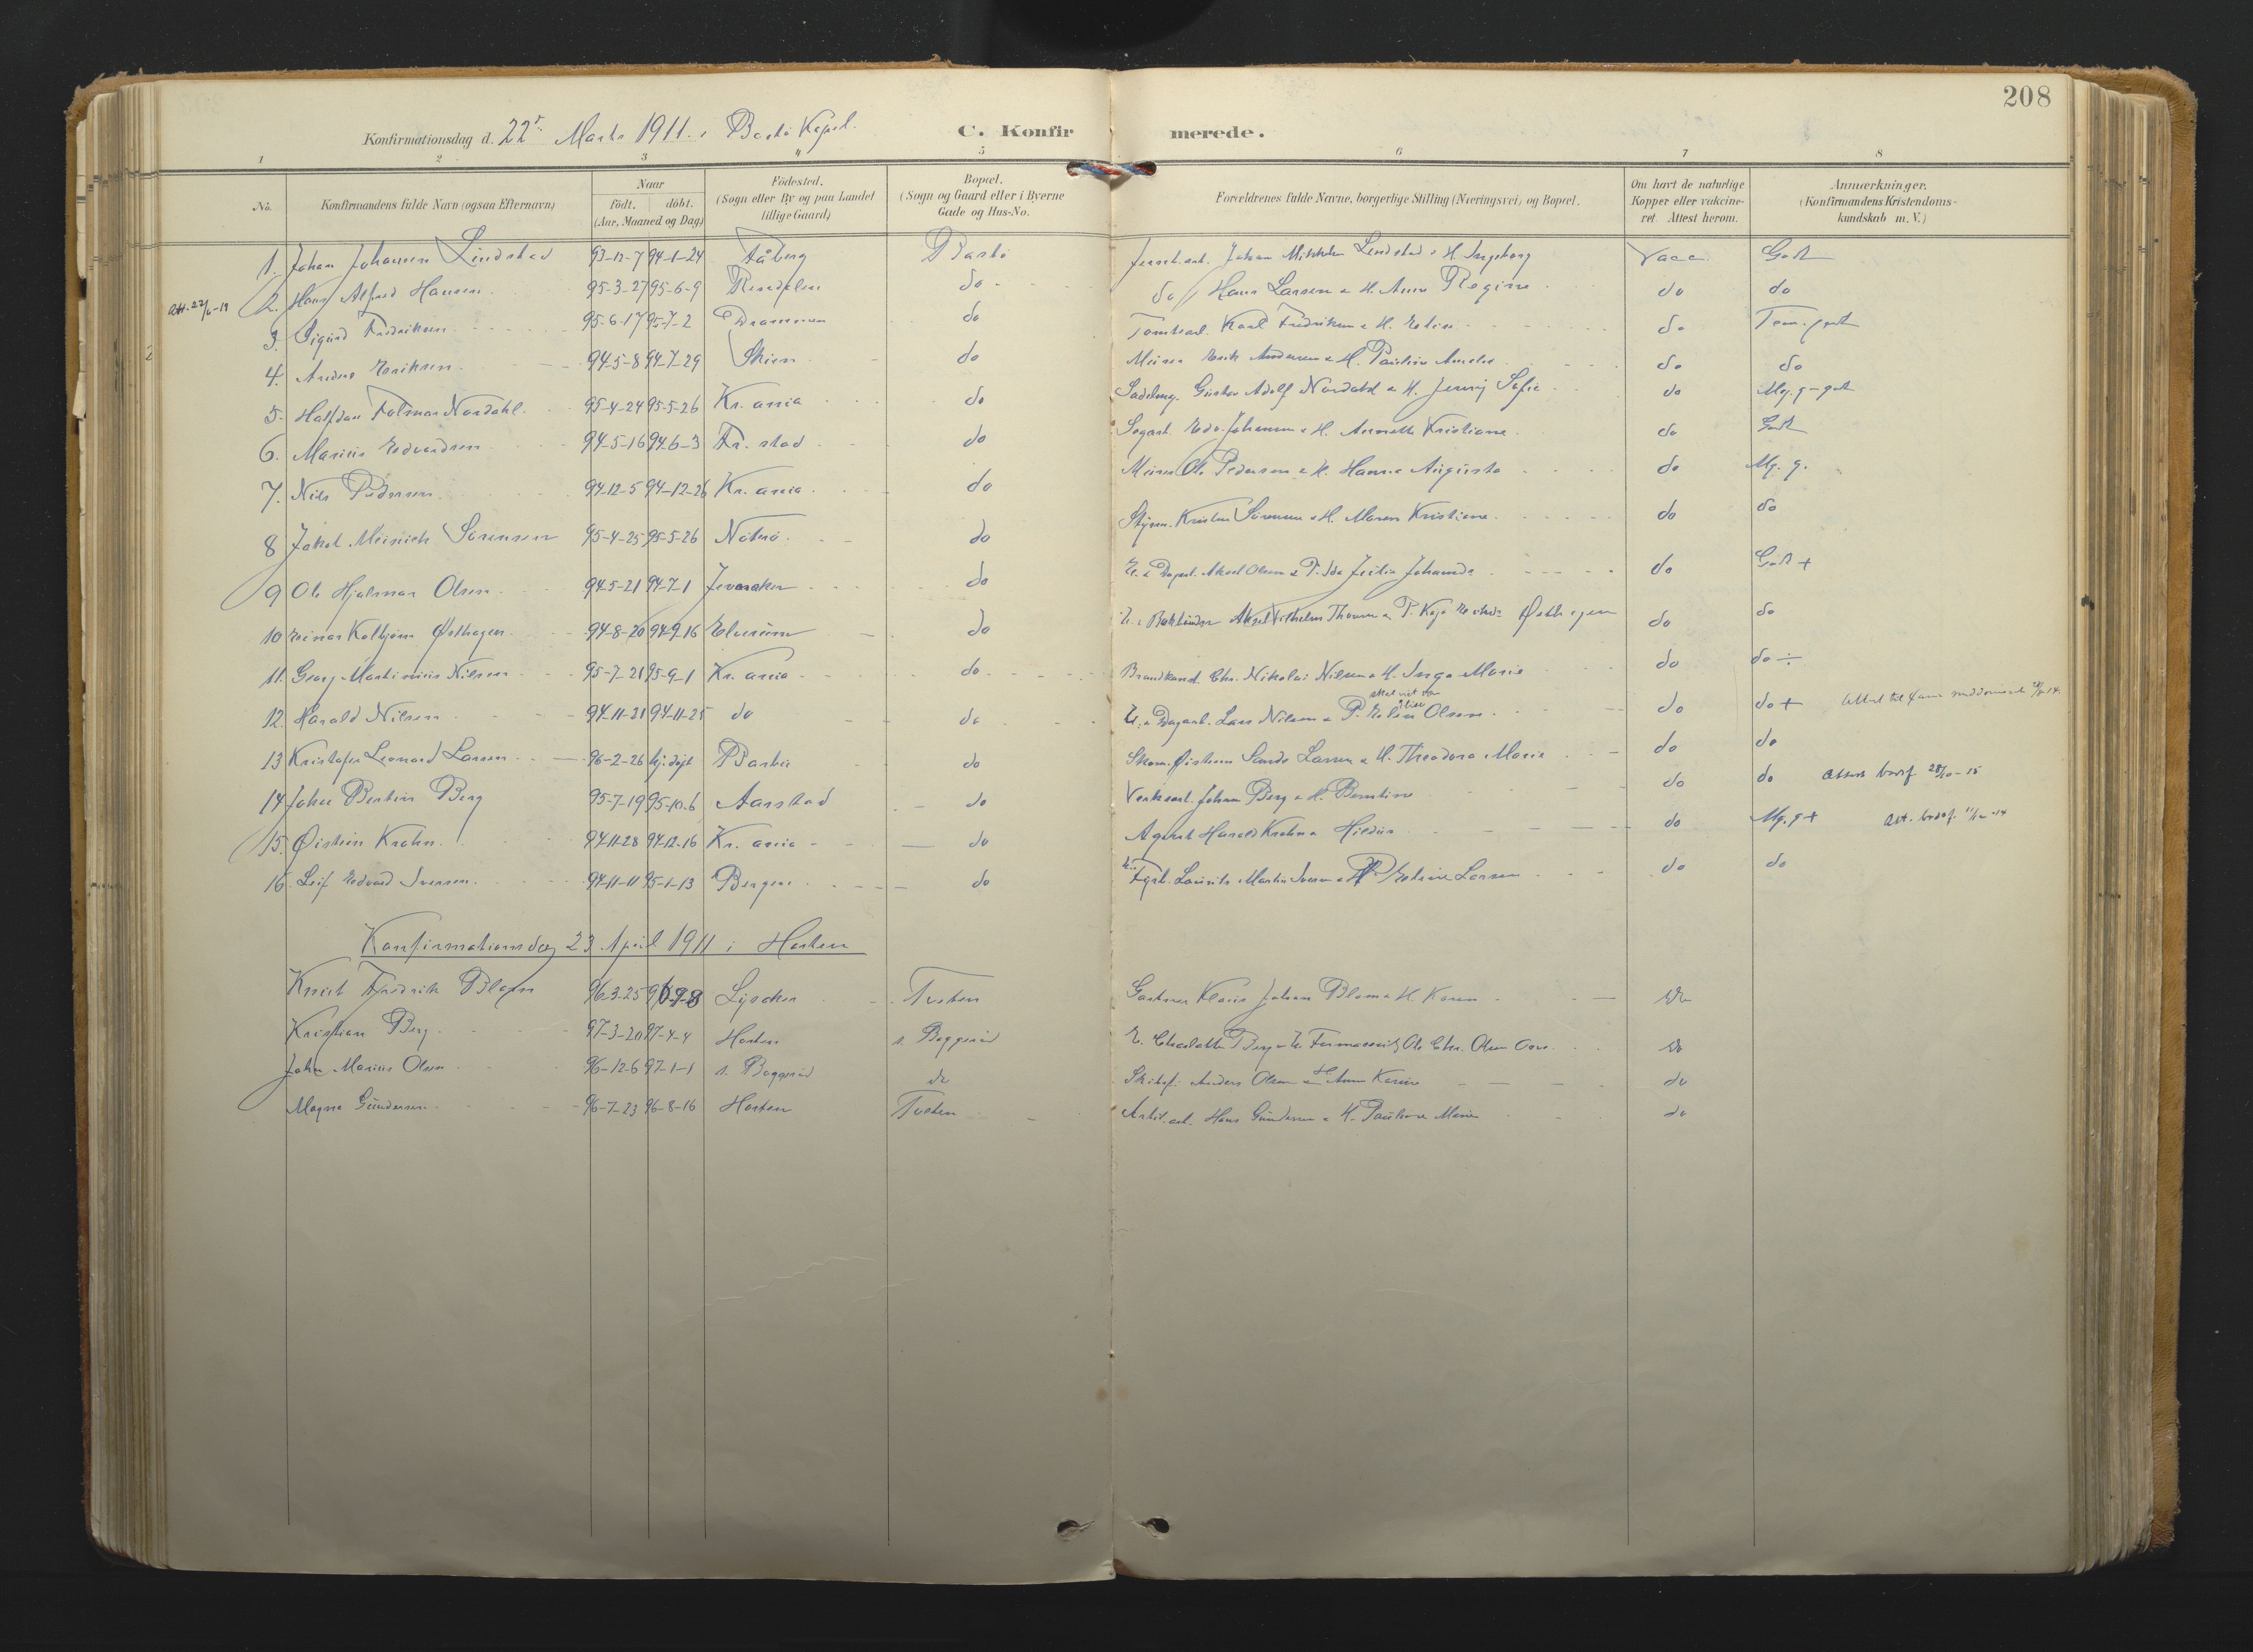 208
Konfirmationsdag d. 22 Marts 1911 i Bastö Kapel.
C. Konfirmerede.
1 2 3 4 5 6 7 8
No. Konfirmandens fulde Navn (ogsaa Efternavn) Naar födt. döbt. (Aar, Maaned og Dag) Födested. (Sogn eller By og paa Landet tillige Gaard) Bopæl. (Sogn og Gaard eller i Byerne Gade og Hus-No. Forældrenes fulde Navne, borgerlige Stilling (Næringsvei) og Bopæl. Om havt de naturlige Kopper eller vakcineret. Attest herom. Anmærkninger. (Konfirmandens Kristendomskundskab m. V.)
1. Johan Johansen Lindstad 93-12-7 94-1-24 Fåberg Bastö Johan Lindstad & H. Ingeborg Vacc Godt
2. Hans Alfred Hansen 95-3-27 95-6-9 do do Hans Larsen & H. Anne Regine do do
3. Sigurd Fredriksen 95-6-17 95-7-2 Drammen do Tomtearb. Karl Fredriksen & H. do
4. Anders Eriksen 94-5-8 94-7-29 Skien do Murer Erik Andersen & H. Pauline Amalie do do
5. Halfdan Nordahl 95-4-24 95-5-26 Kr.ania do Sadelmg. Gustav Adolf Nordahl & H. Jenny Sofie do
6. Marius Edvardsen 94-5-16 94-6-3 Fr.stad do Edv. Johansen & H. Annette Kristiane do Godt
7. Nils Pedersen 94-12-5 94-12-26 Kr.ania do Murer Ole Pedersen & H. Hanna Augusta do Mg. g.
8 Jakob Meinich Sörensen 95-4-25 95-5-26 Nöterö do Styrm. Kristen Sörensen & H. Maren Kristiane do do
9 Ole Hjalmar Olsen 94-5-21 94-7-1 Jevnaker do U. & Dagarb. Aksel Olsen & P. Ida do Godt +
10 Einar Kolbjörn Østhagen 94-8-20 94-9-16 Elverum do U. & Bokbinder Aksel Vilhelm Thoresen & P. Østhagen do do
11. Georg Martinius Nilsen 95-7-21 95-9-1 Kr.ania do Brandkonst. Chr. Nikolai Nilsen & H. Inga Marie do do ÷
12. Harald Nilsen 94-11-21 94-11-25 do do U. & Dagarb. Lars Nilsen & P. Olsen do do +
13 Kristofer Leonard Larsen 96-2-26 hj.døpt do Skom. Øistein Sande Larsen & H. Theodora Marie do do
14 Johan Berntin Berg 95-7-19 95-10-6 Aarstad do Verksarb. Johan Berg & H. Berntine do do
15. Øistein Krohn 94-11-28 94-12-16 Kr.ania do Agent Harald Krohn & Hildur do Mg. g +
16. Leif Edvard Iversen 94-11-11 95-1-13 Bergen do Laurits Martin Iversen & P. Larsen do do
Konfirmationsdag 23 April 1911 i Horten
Knut Fredrik Blom 96-3-25 Lysaker Tveten Gartner Klaus Johan Blom & H. Karen do
Kristian Berg 97-3-20 97-4-4 Horten Ole Chr. Olsen do
John Marius Olsen 96-12-6 97-1-1 do Anders Olsen & H. Anna Karine do
Magna Gundersen 96-7-23 96-8-16 Horten Tveten Hans Gundersen & H. Pauline Marie do